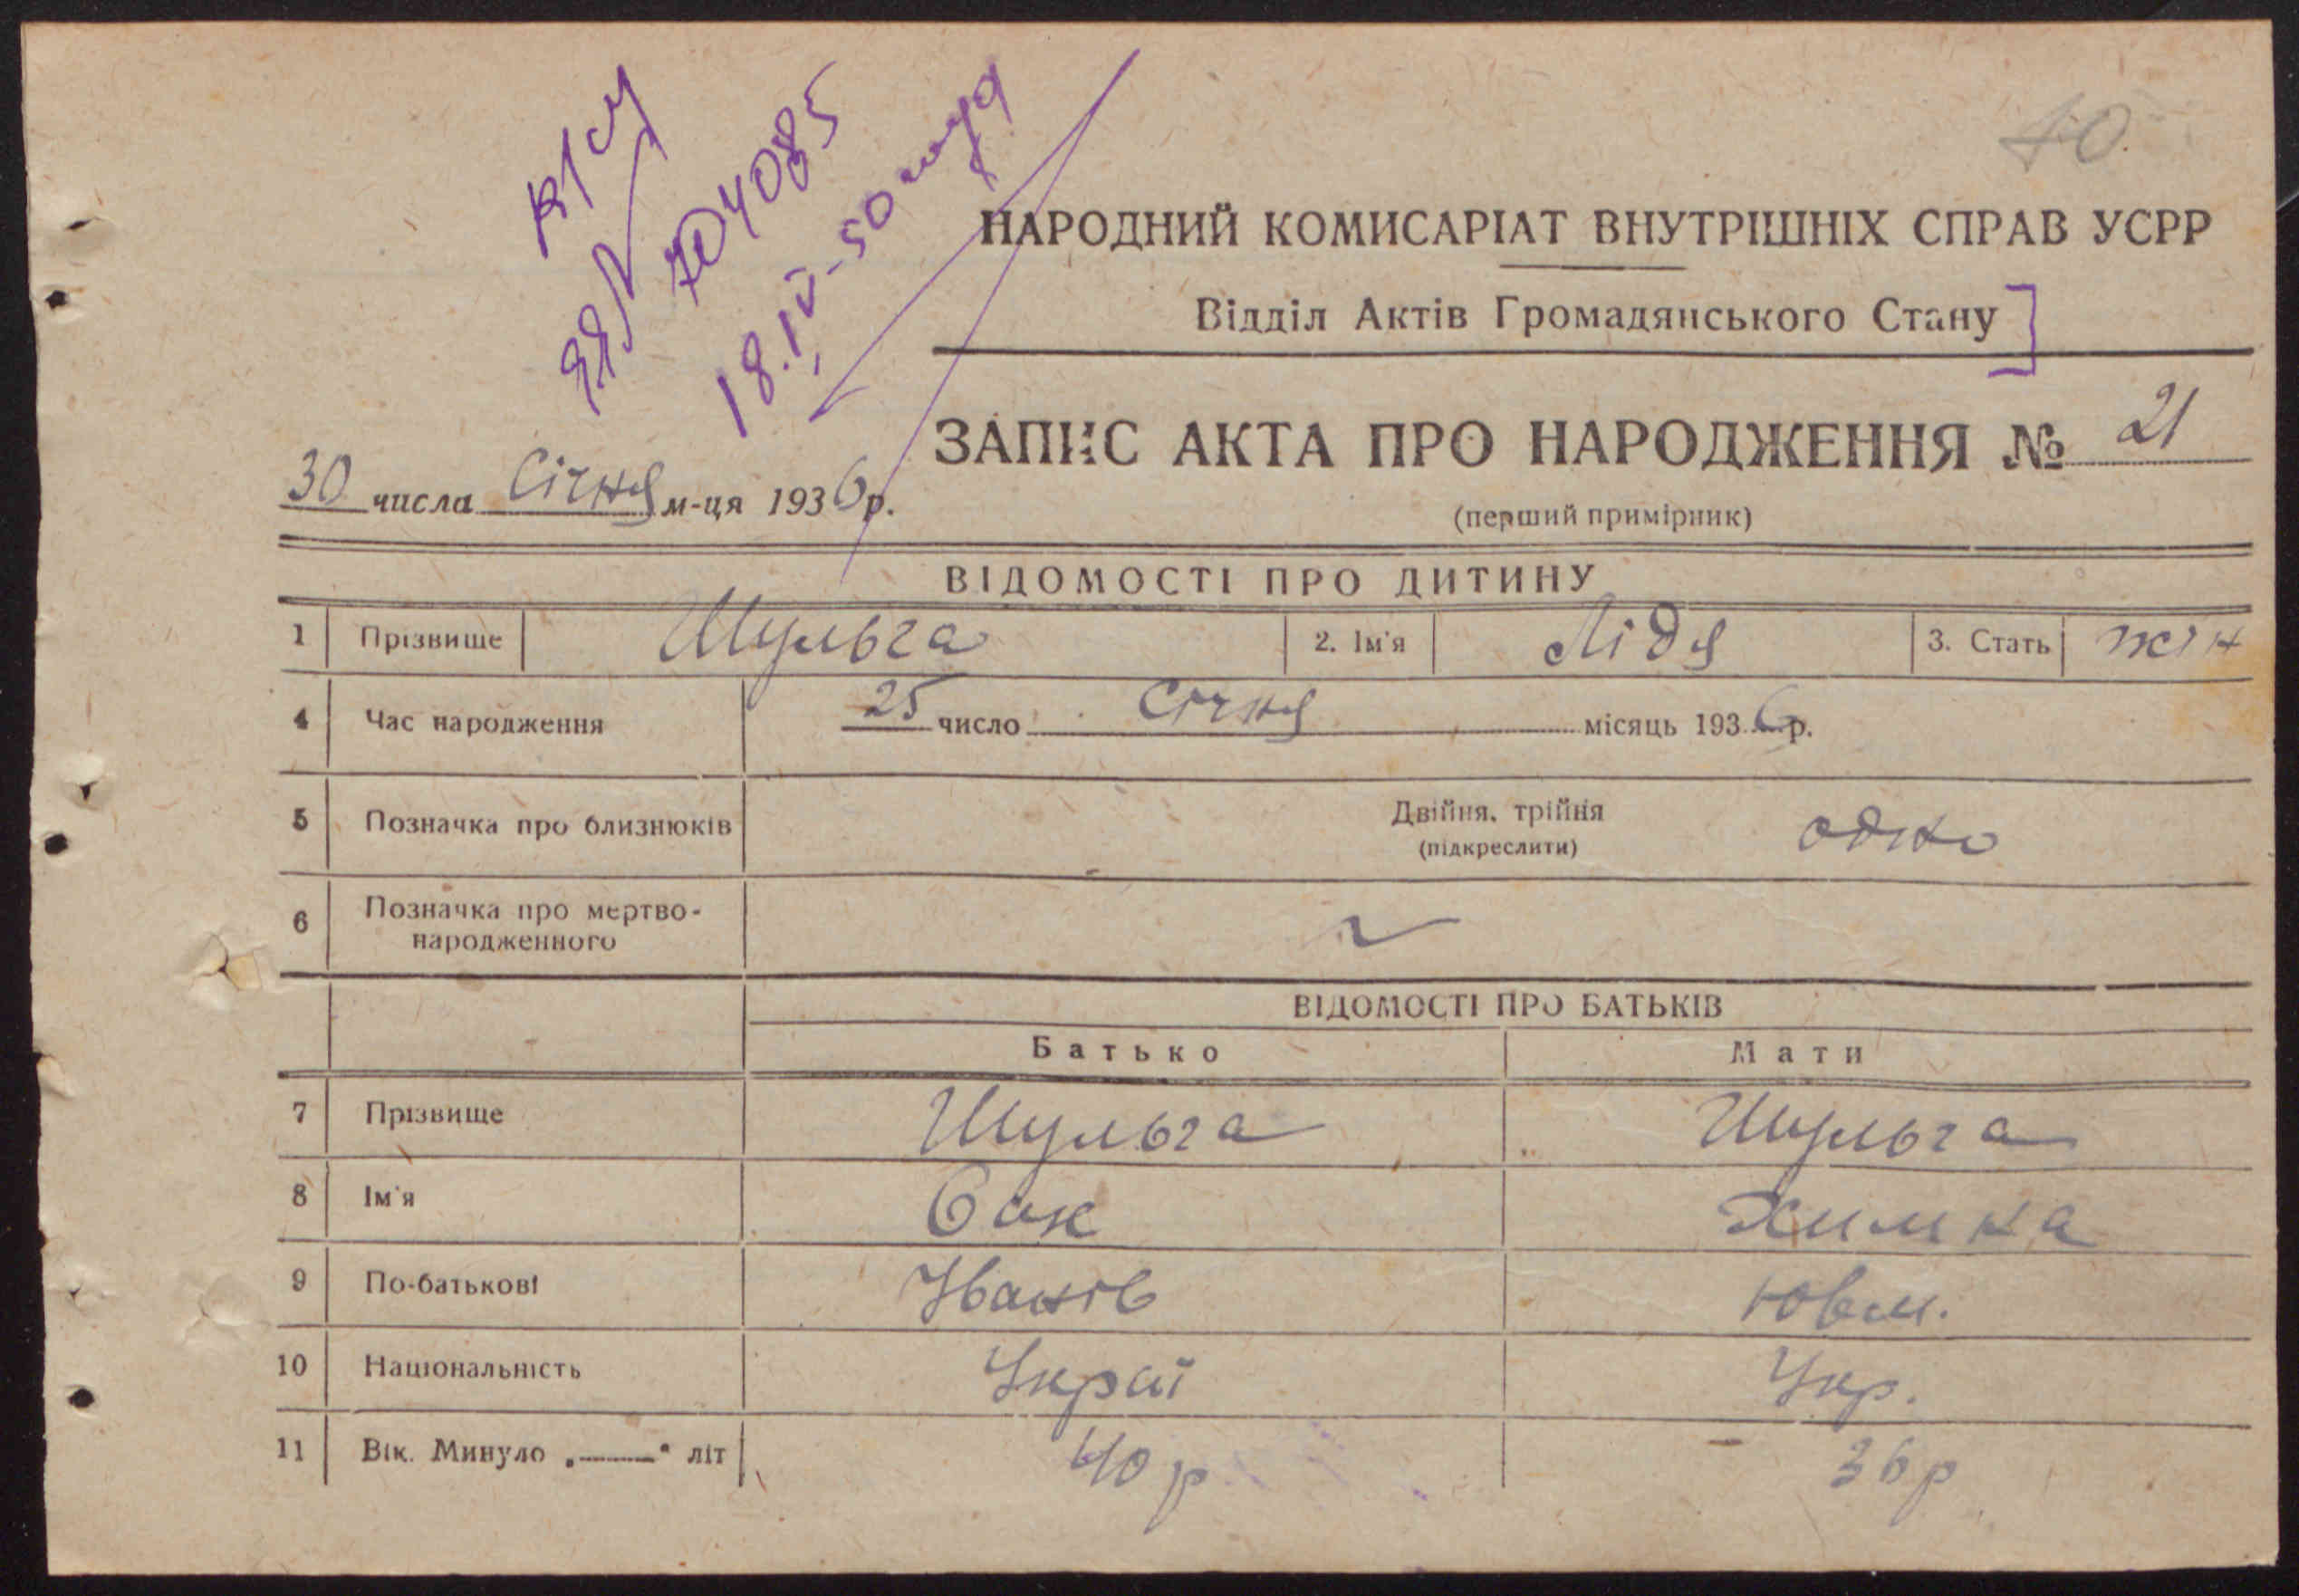 40.
704085
18.IV-50
НАРОДНИЙ КОМИСАРІАТ ВНУТРІШНІХ СПРАВ УСРР
Відділ Актів Громадянського Стану
ЗАПИС АКТА ПРО НАРОДЖЕННЯ № 21
30 числа Січня м-ця 1936 р.
(перший примірник)
ВІДОМОСТІ ПРО ДИТИНУ
1 Прізвище Шульга 2. Ім'я Лідя 3. Стать жін
4 Час народження 25 число Січня місяць 1936 р.
5 Позначка про близнюків Двійня, трійня одно
(підкреслити)
6 Позначка про мертво-
народженного
ВІДОМОСТІ ПРО БАТЬКІВ
Батько Мати
7 Прізвище Шульга Шульга
8 Ім'я Сак Химка
9 По-батькові Іванів Юхим.
10 Національність Украї Укр.
11 Вік. Минуло „——“ літ 40 р 36 р